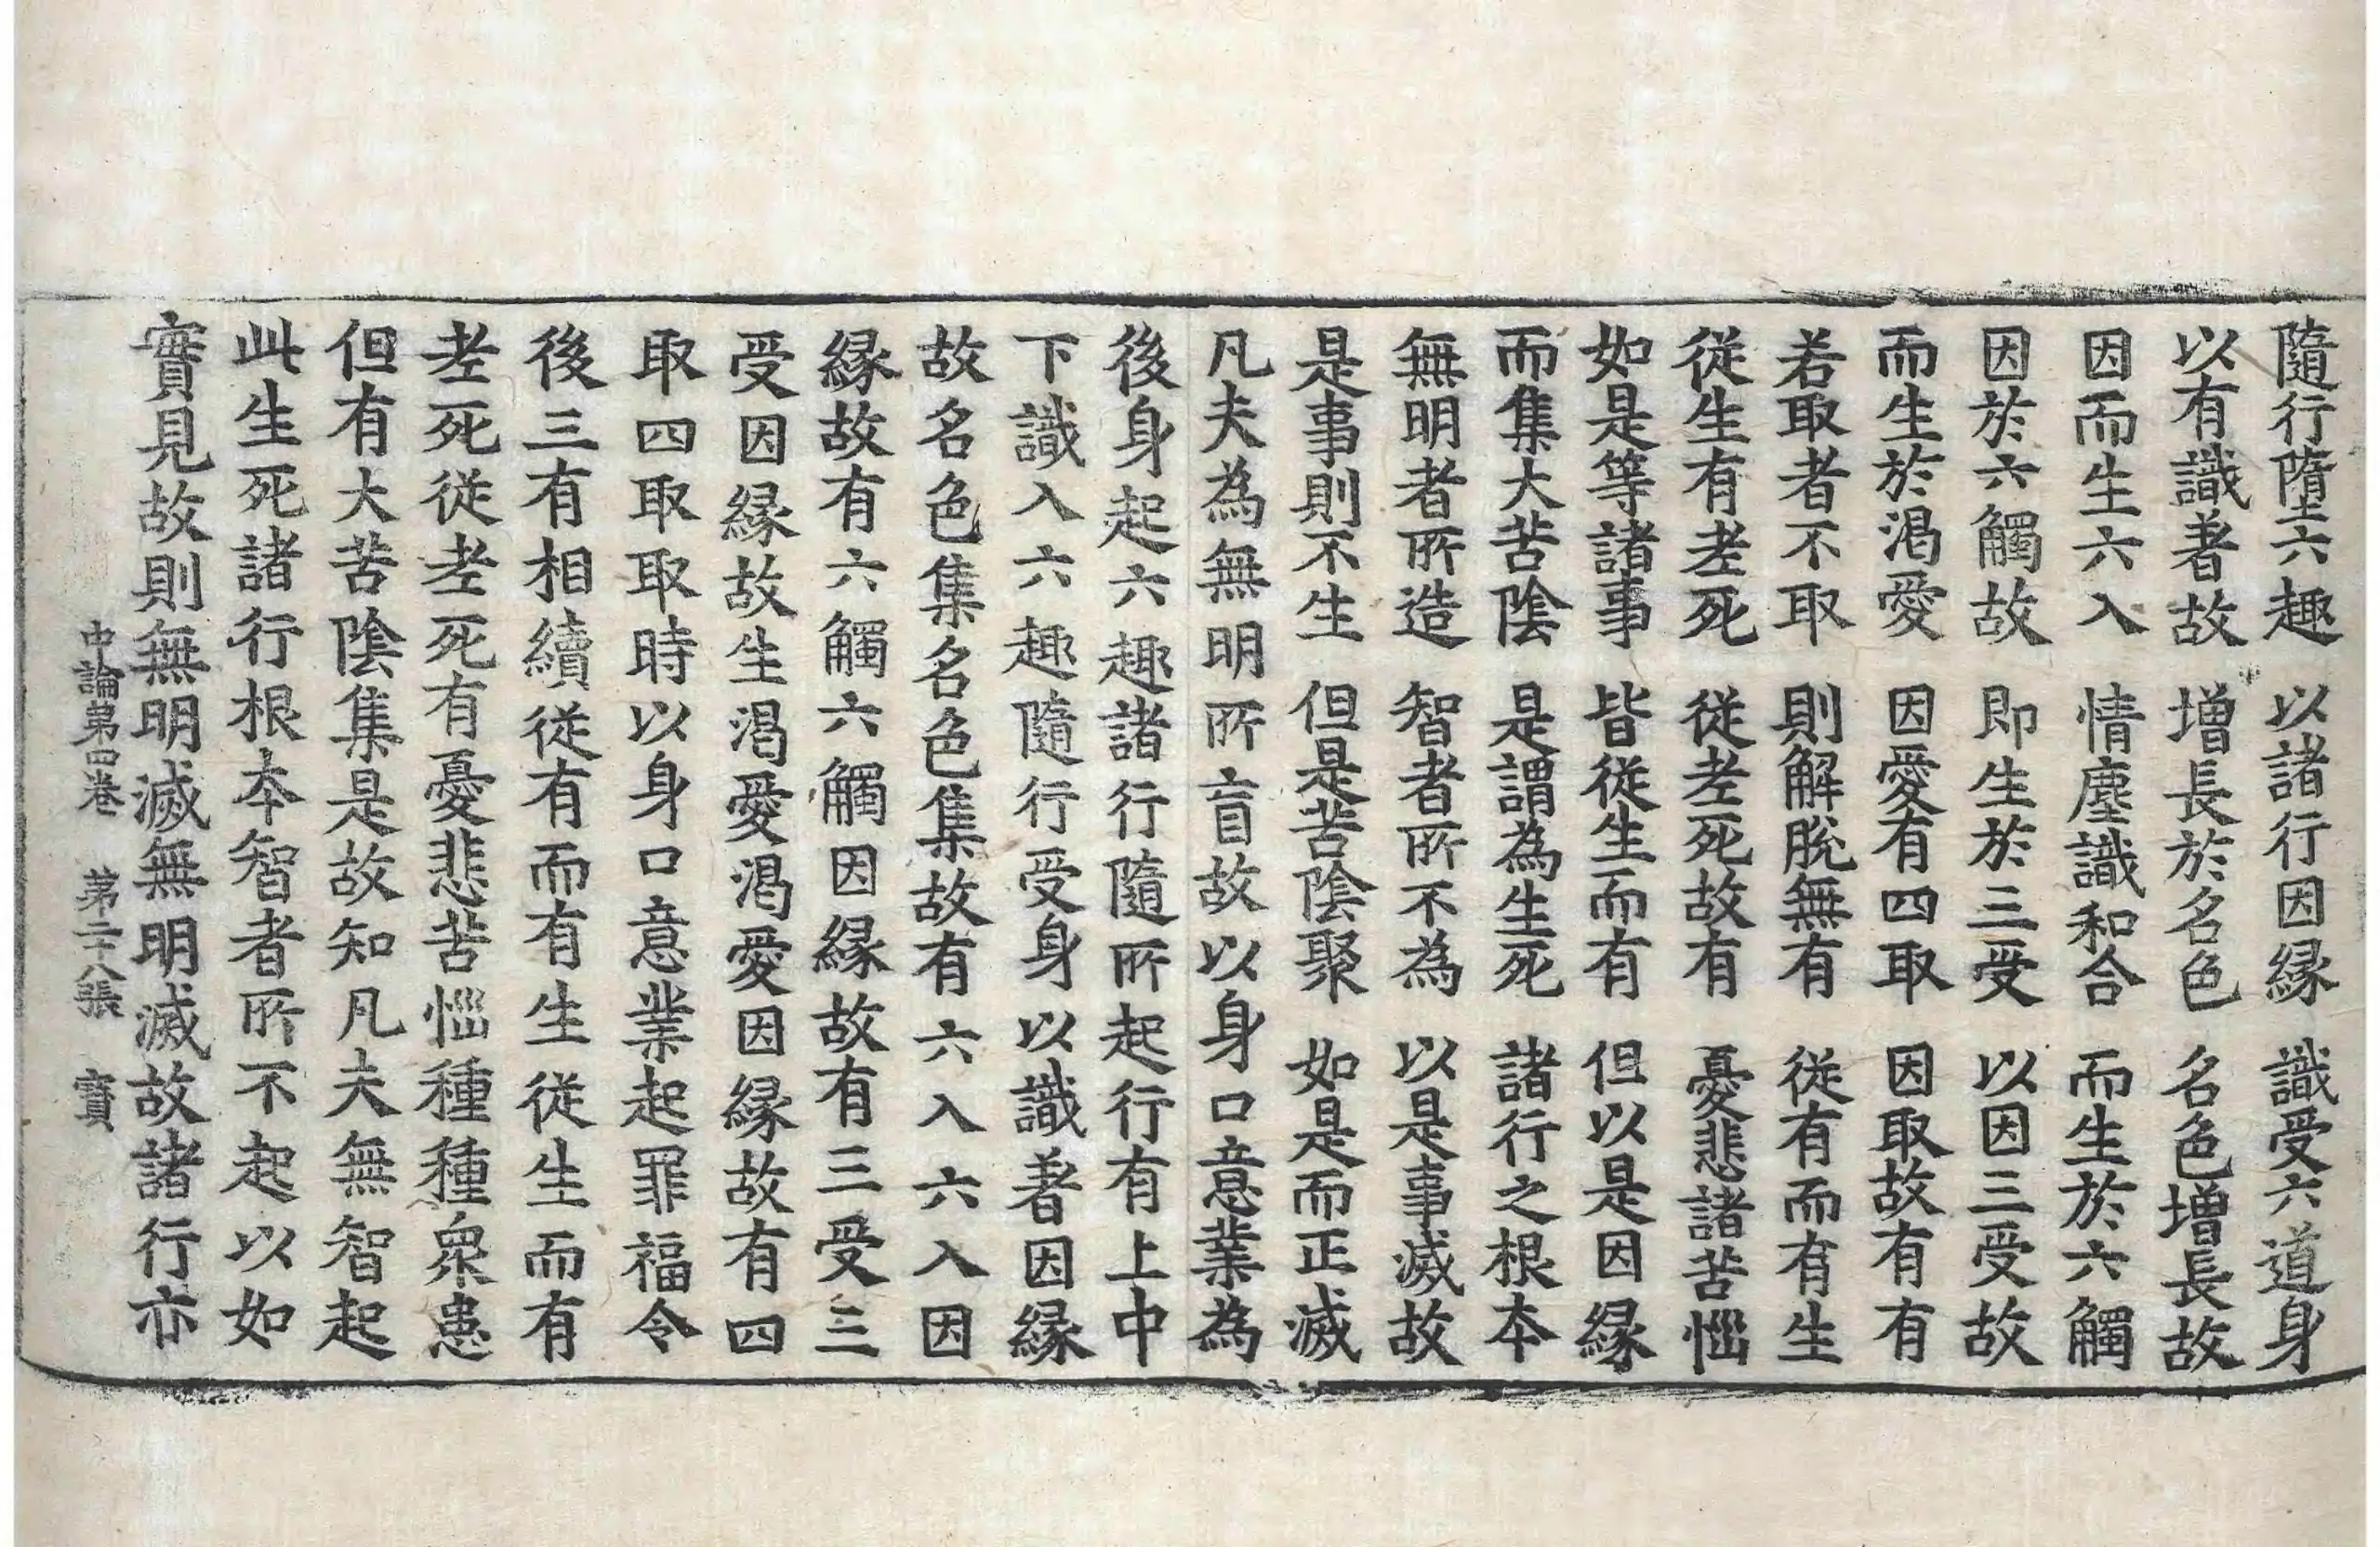 隨行墮六趣 以諸行因縁 識受六道身
以有識著故 增長於名色 名色增長故
因而生六入 情塵識和合 而生於六觸
因於六觸故 即生於三受 以因三受故
而生於渴愛 因愛有四取 因取故有有
若取者不取 則解脫無有 從有而有生
從生有老死 從老死故有 憂悲諸苦惱
如是等諸事 皆從生而有 但以是因縁
而集大苦陰 是謂為生死 諸行之根本
無明者所造 智者所不為 以是事滅故
是事則不生 但是苦陰聚 如是而正滅
凡夫為無明所盲故以身口意業為
後身起六趣諸行隨所起行有上中
下識入六趣隨行受身以識著因縁
故名色集名色集故有六入六入因
縁故有六觸六觸因縁故有三受三
受因縁故生渴愛渴愛因縁故有四
取四取取時以身口意業起罪福令
後三有相續從有而有生從生而有
老死從老死有憂悲苦惱種種衆患
但有大苦陰集是故知凡夫無智起
此生死諸行根本智者所不起以如
實見故則無明滅無明滅故諸行亦
中論第四卷 第二十八張 寶